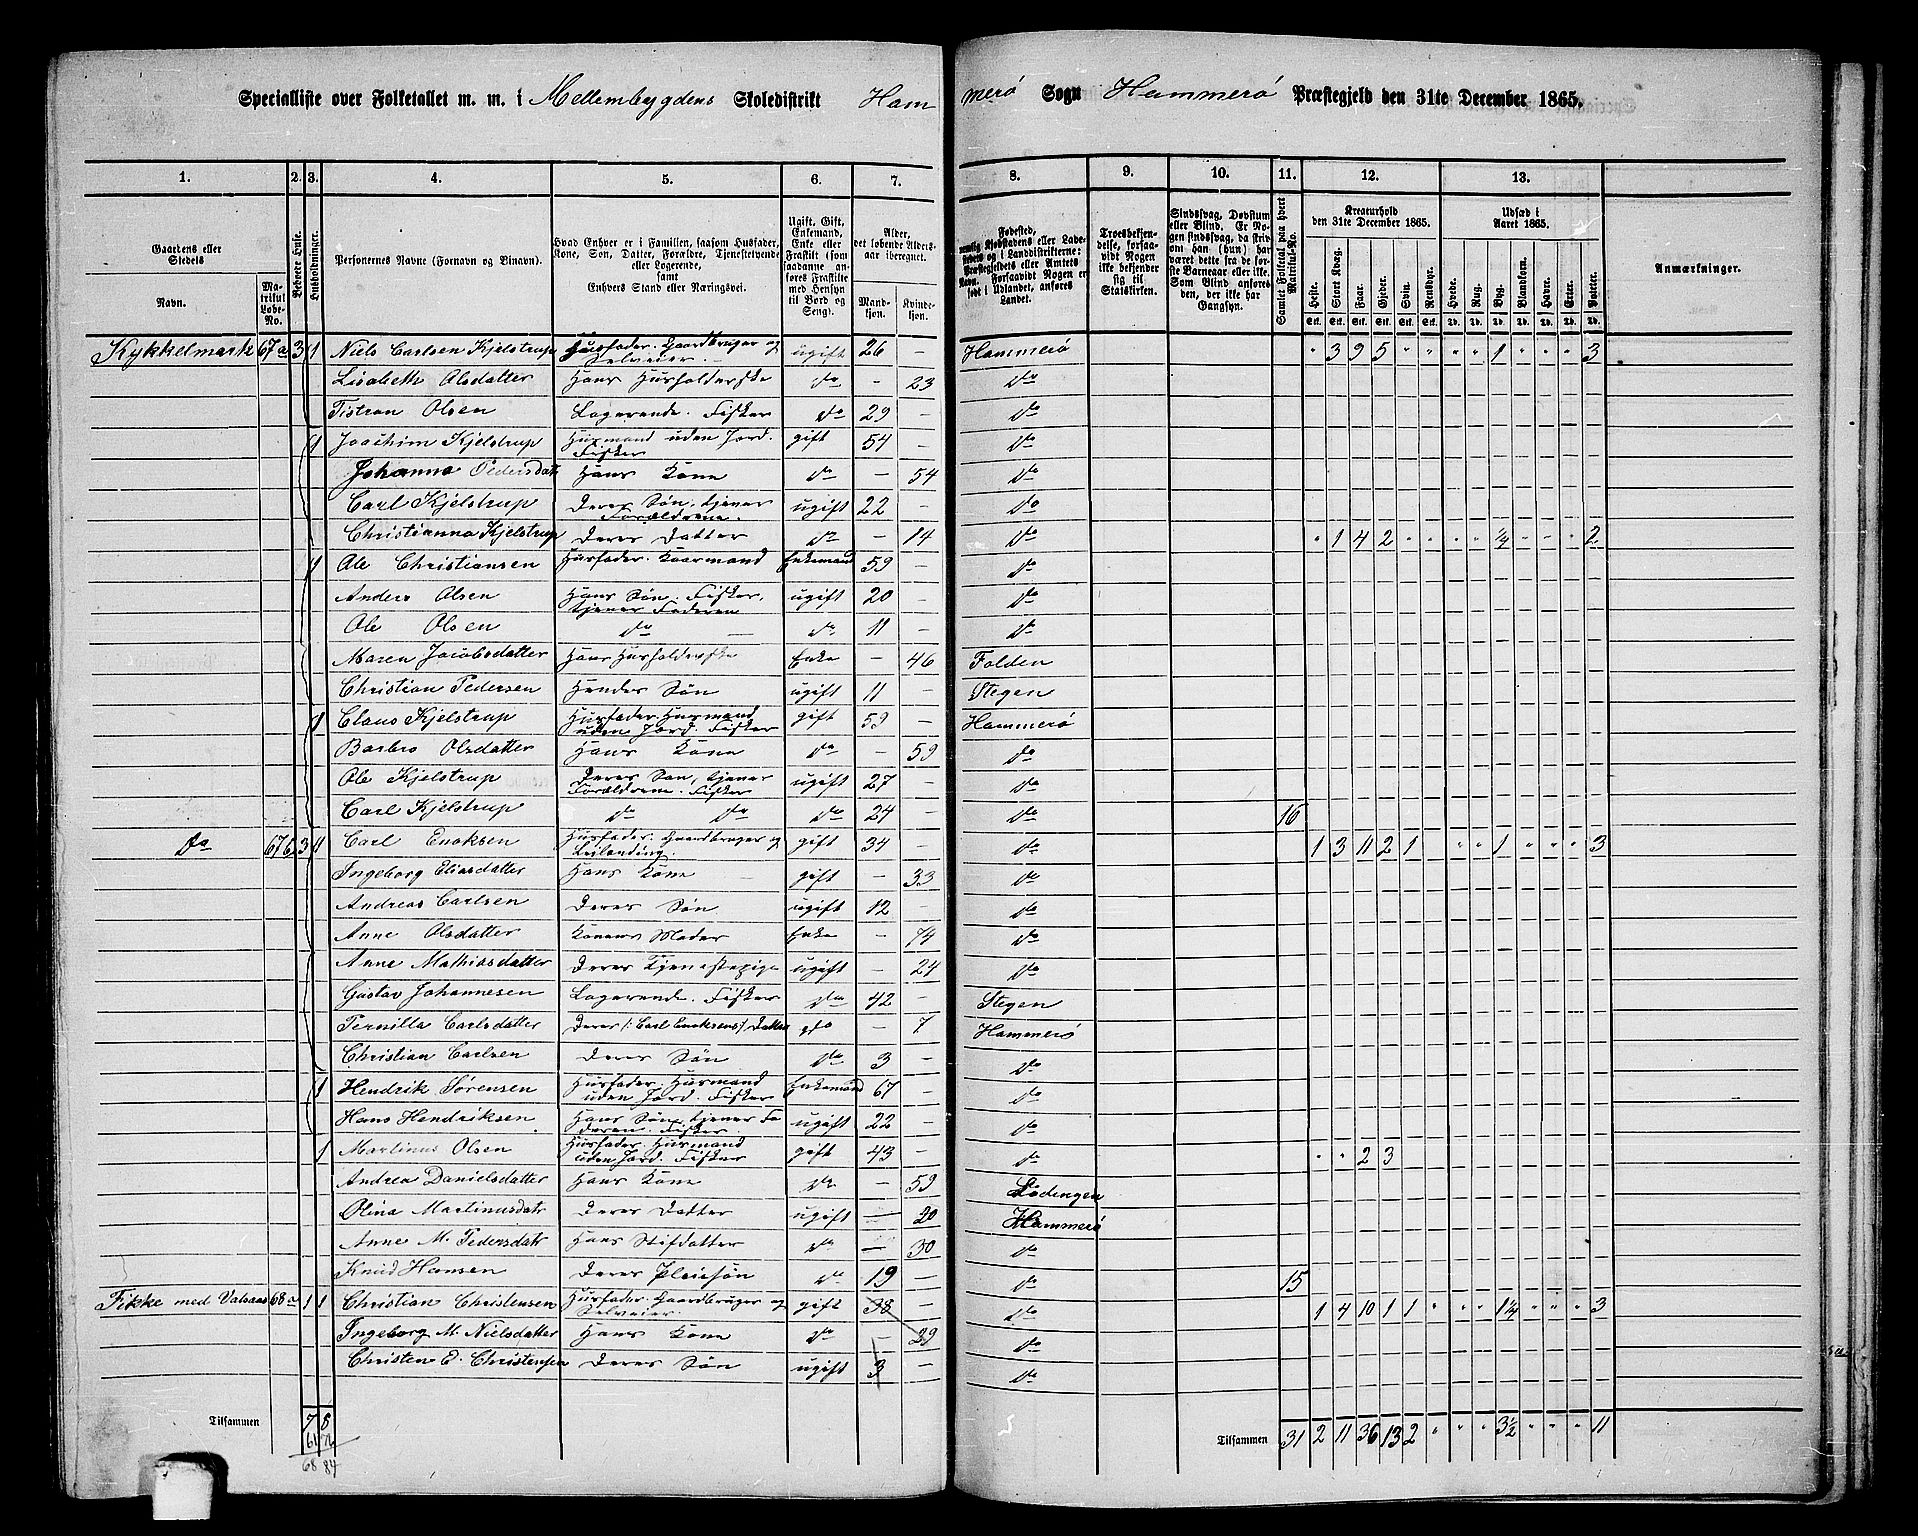 Specialliste over Folketallet m. m. i Mellembygdens Skoledistrikt Hammerø Sogn Hammerø Præstegjeld den 31te December 1865.
1. 2. 3. 4. 5. 6. 7. 8. 9. 10. 11. 12. 13.
Gaardens eller Stedets
Navn.
Matrikul Løbe-No.
Beboede Huse.
Husholdninger.
Personernes Navne (Fornavn og Binavn).
Hvad Enhver er i Familien, saasom Husfader, Kone, Søn, Datter, Forældre, Tjenestetyende eller Logerende, samt Enhvers Stand eller Næringsvei.
Ugift, Gift, Enkemand, Enke eller Fraskilt (som saadanne anføres Fraskilte med Hensyn til Bord og Seng).
Alder, det løbende Alders-aar iberegnet.
Mandkjøn. Kvindekjøn.
Fødested,
Troesbekjendelse, forsaavidt Nogen ikke bekjender sig til Statskirken.
Sindssvag, Døvstum eller Blind. Er Nogen sindssvag, da skrives om han (hun) har været dette fra de første Barneaar eller ikke. Som Blind anføres den, der ikke har Gangsyn.
Samlet Folketal paa hvert Matrikul-No.
Kreaturhold den 31te December 1865.
Heste. Stort Kvæg. Faar. Gjeder. Svin. Rensdyr.
Udsæd i Aaret 1865.
Hvede. Rug. Byg. Blandkorn. Havre. Erter. Poteter.
Anmærkninger.
Kykkelmark 67 a 3 1 Niels Carlsen Kjelstrup Husfader. Gaardbruger og Selveier. ugift 26 – Hammerø " 3 9 5 " " " " 1 " " " 3
Lisabeth Olsdatter Hans Husholderske do – 23 do
Tistran Olsen Logerende. Fisker do 29 – do
1 Joachim Kjelstrup Husmand uden Jord. Fisker gift 54 – do
Johanna Pedersdatr Hans Kone do – 54 do
Carl Kjelstrup Deres Søn, tjener Forældrene. ugift 22 – do
Christianna Kjelstrup Deres Datter do – 14 do " 1 4 2 " " " " 1/4 " " " 2
1 Ole Christiansen Husfader. Kaarmand Enkemand 59 – do
Anders Olsen Hans Søn. Fisker, tjener Faderen ugift 20 – do
Ole Olsen do do 11 – do
Maren Jacobsdatter Hans Husholderske Enke – 46 Folden
Christian Pedersen Hendes Søn ugift 11 – Stegen
1 Claus Kjelstrup Husfader. Husmand uden Jord. Fisker gift 59 – Hammerø
Barbro Olsdatter Hans Kone do – 59 do
Ole Kjelstrup Deres Søn, tjener Forældrene. Fisker ugift 27 – do
Carl Kjelstrup do do do 24 – do 16
do 67 b 3 1 Carl Enoksen Husfader. Gaardbruger og Leilending. gift 34 – do 1 3 11 2 1 " " 1 " " " 3
Ingeborg Eliasdatter Hans Kone gift – 33 do
Andreas Carlsen Deres Søn ugift 12 – do
Anne Olsdatter Konens Moder Enke – 74 do
Anne Mathiasdatter Deres Tjenestepige ugift – 24 do
Gustav Johannesen Logerende. Fisker do 42 – Stegen
Pernilla Carlsdatter Deres (: Carl Enoksens) Datter do – 7 Hammerø
Christian Carlsen Deres Søn do 3 – do
1 Hendrik Sørensen Husfader. Husmand uden Jord. Fisker Enkemand 67 – do
Hans Hendriksen Hans Søn, tjener Faderen. Fisker ugift 22 – do
1 Martinus Olsen Husfader. Husmand uden Jord. Fisker gift 43 – do " " 2 3
Andrea Danielsdatter Hans Kone do – 59 Lødingen
Olina Martinusdatr Deres Datter ugift – 20 Hammerø
Anne M. Pedersdatr Hans Stifdatter do – 30 do
Knud Hansen Deres Pleiesøn do 19 – do 15
Fikke med Valsaas 68 a 1 1 Christian Christensen Husfader. Gaardbruger og Selveier. gift 38 – do 1 4 10 1 1 " " " 1 1/4 " " " 3
Ingeborg M. Nielsdatter Hans Kone do – 29 do
Christen E. Christensen Deres Søn ugift 3 – do
Tilsammen 7 8
61 76
68 84
Tilsammen 31 2 11 36 13 2 " " " 3 1/2 " " " 11